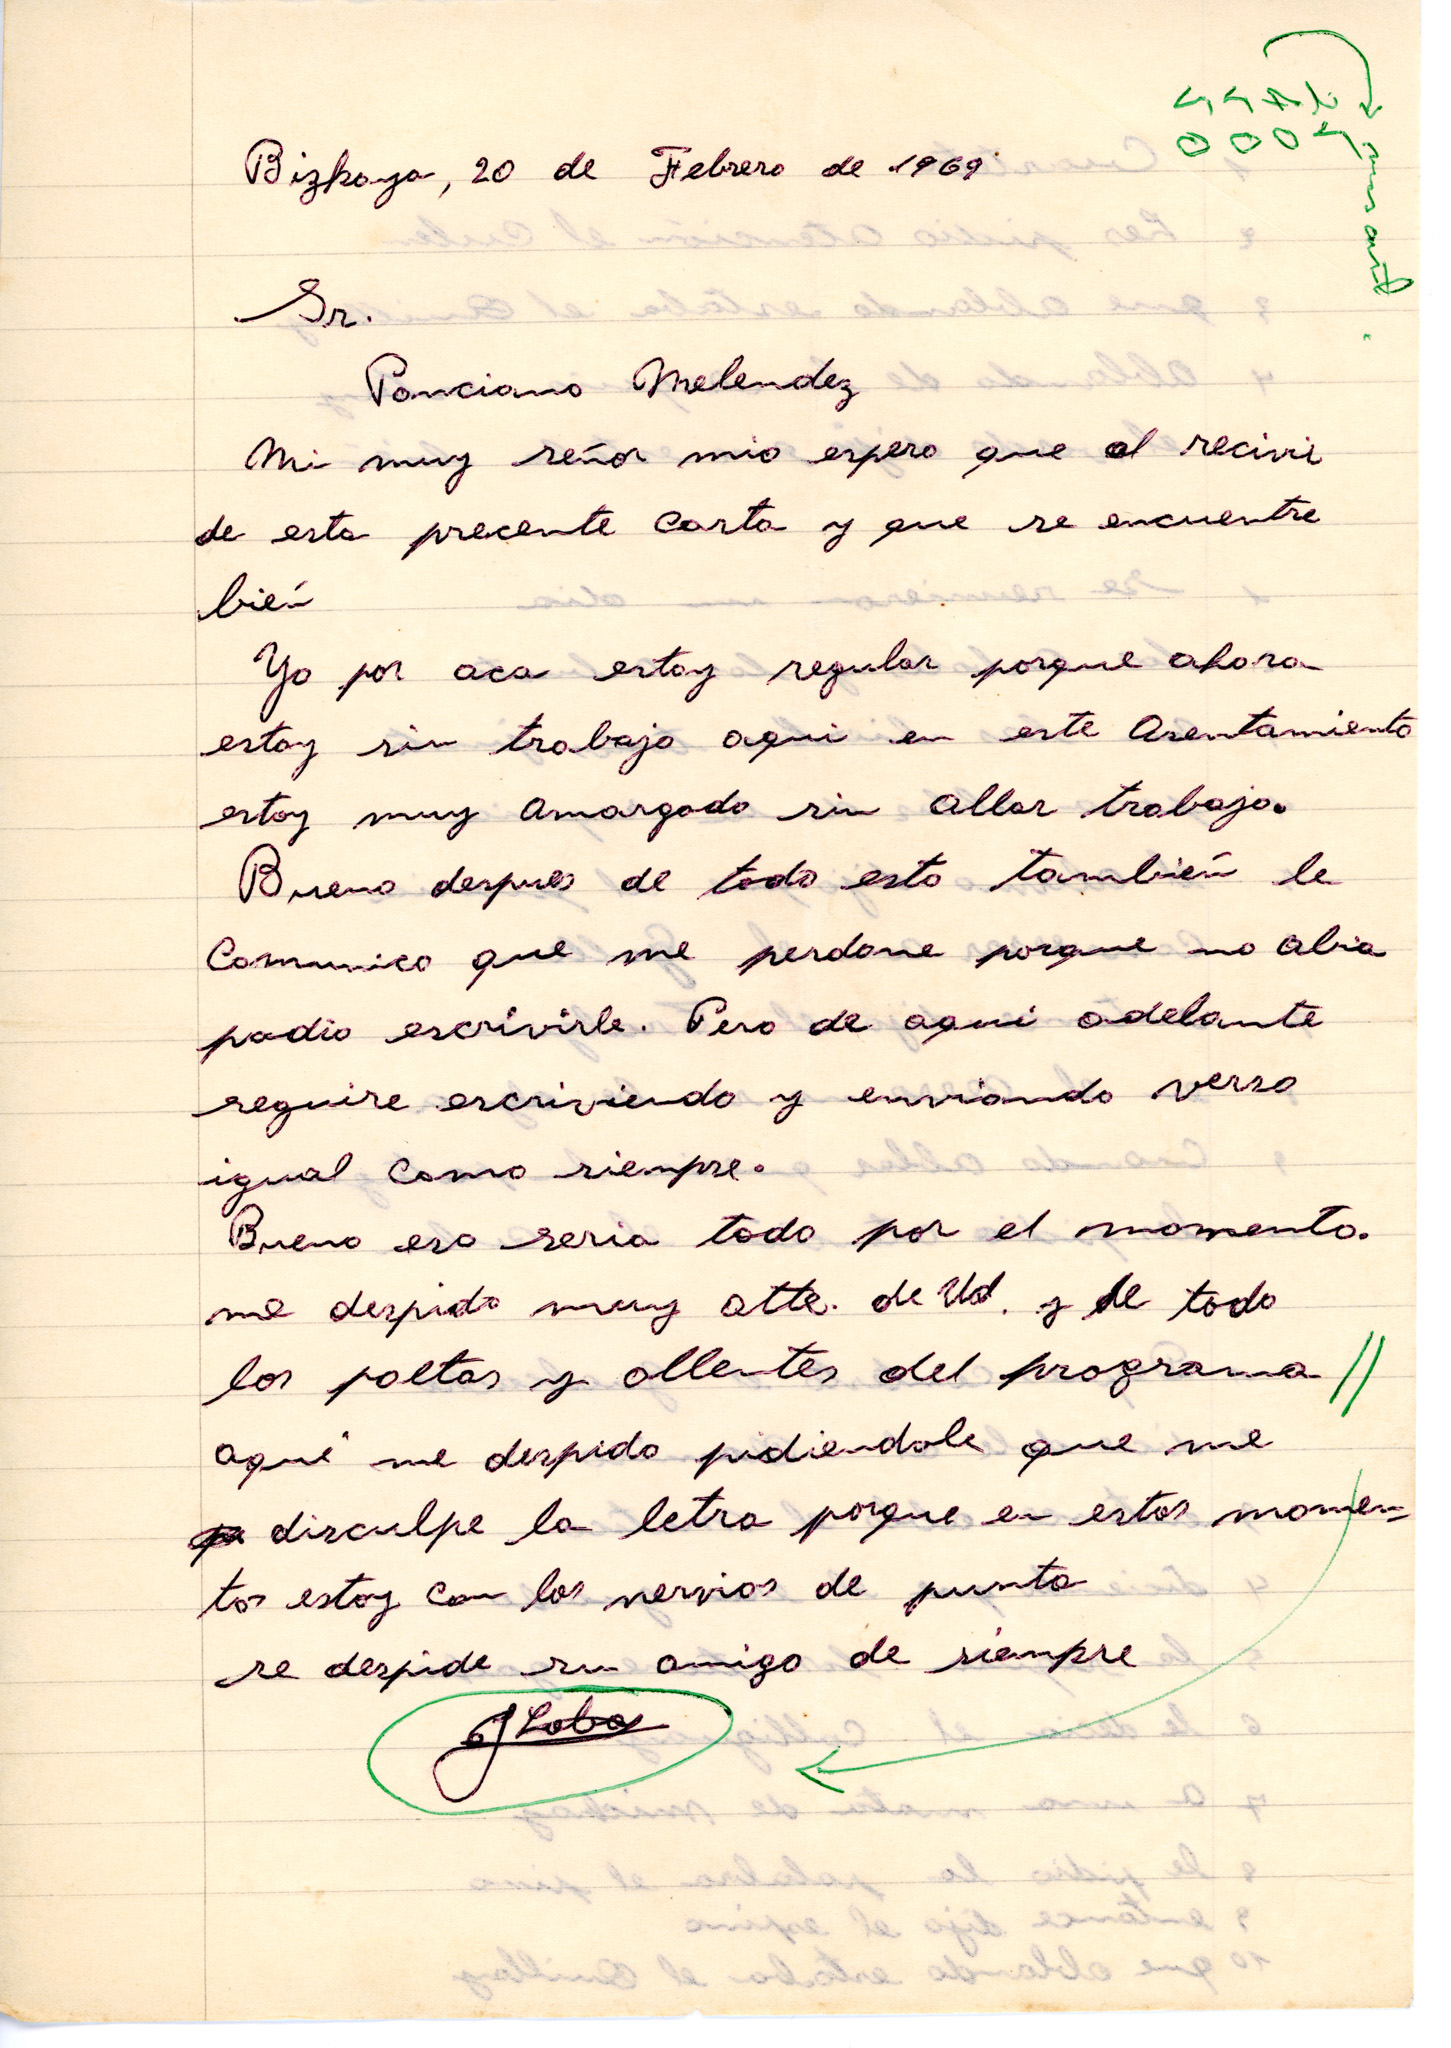 Bizkaya, 20 de Febrero de 1969
Sr.
Ponciano Melendez
Mi muy señor mio espero que al recivir
de esta precente carta y que se encuentre
bién
Yo por aca estoy regular porque ahora
estoy sin trabajo aqui en este Asentamiento
estoy muy amargado sin allar trabajo.
Bueno despues de todo esto también le
comunico que me perdone porque no abia
podio escrivirle. Pero de aqui adelante
seguire escriviendo y enviando verso
igual como siempre.
Bueno eso seria todo por el momento.
me despido muy atte. de Ud. y de todo
los poetas y ollentes del programa //
aqui me despido pidiendole que me
disculpe la letra porque en estos momen=
tos estoy con los nervios de punta
se despide su amigo de siempre
J Loba